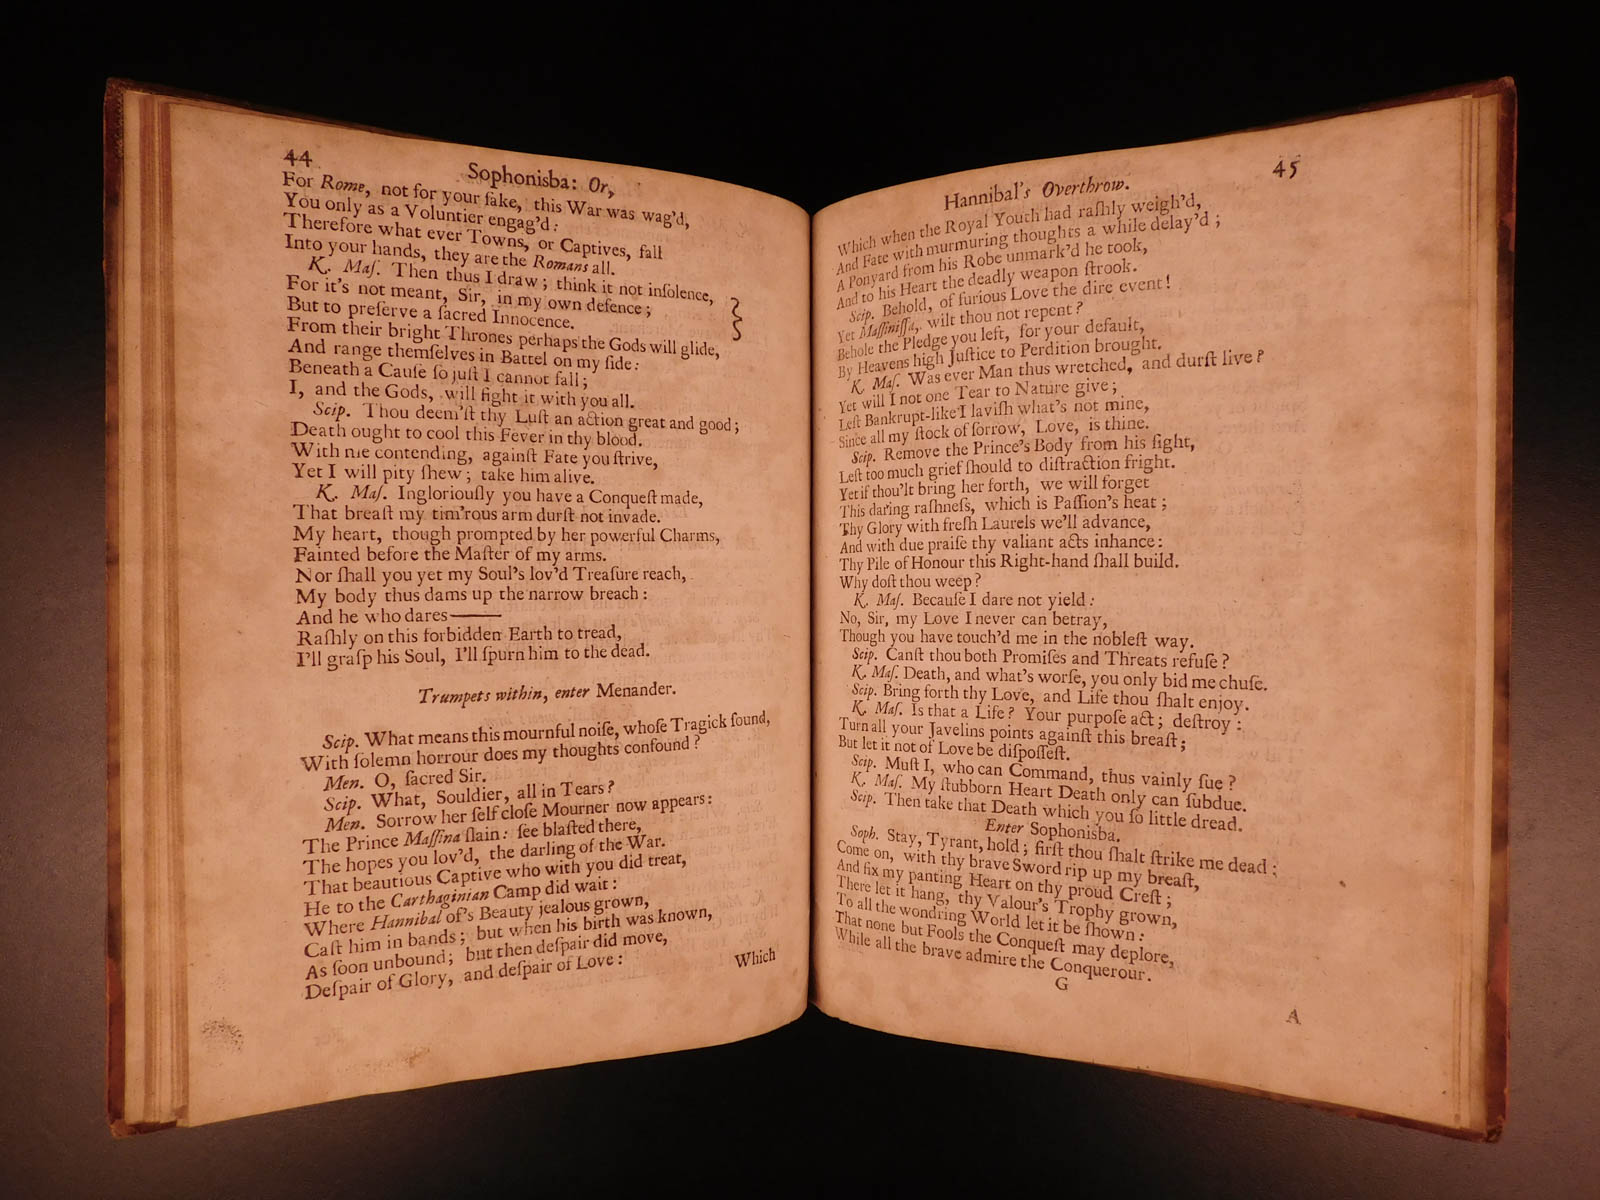 44
Sophonisba: Or,
For Rome, not for your ſake, this War was wag'd,
You only as a Voluntier engag'd:
Therefore what ever Towns, or Captives, fall
Into your hands, they are the Romans all.
K. Maſ. Then thus I draw; think it not inſolence,
For it's not meant, Sir, in my own defence;
But to preſerve a ſacred Innocence.
From their bright Thrones perhaps the Gods will glide,
And range themſelves in Battel on my ſide:
Beneath a Cauſe ſo juſt I cannot fall;
I, and the Gods, will fight it with you all.
Scip. Thou deem'ſt thy Luſt an action great and good;
Death ought to cool this Fever in thy blood.
With me contending, againſt Fate you ſtrive,
Yet I will pity ſhew; take him alive.
K. Maſ. Inglorioufly you have a Conqueſt made,
That breaſt my tim'rous arm durſt not invade.
My heart, though prompted by her powerful Charms,
Fainted before the Maſter of my arms.
Nor ſhall you yet my Soul's lov'd Treaſure reach,
My body thus dams up the narrow breach:
And he who dares——
Raſhly on this forbidden Earth to tread,
I'll graſp his Soul, I'll ſpurn him to the dead.
Trumpets within, enter Menander.
Scip. What means this mournful noiſe, whoſe Tragick ſound,
With ſolemn horrour does my thoughts confound?
Men. O, ſacred Sir.
Scip. What, Souldier, all in Tears?
Men. Sorrow her ſelf cloſe Mourner now appears:
The Prince Maſſina ſlain: ſee blaſted there,
The hopes you lov'd, the darling of the War.
That beautious Captive who with you did treat,
He to the Carthaginian Camp did wait:
Where Hannibal of's Beauty jealous grown,
Caſt him in bands; but when his birth was known,
As ſoon unbound; but then deſpair did move,
Deſpair of Glory, and deſpair of Love:
Which
Hannibal's Overthrow.
45
Which when the Royal Youth had raſhly weigh'd,
And Fate with murmuring thoughts a while delay'd;
A Ponyard from his Robe unmark'd he took,
And to his Heart the deadly weapon ſtrook.
Scip. Behold, of furious Love the dire event!
Yet Maſſiniſſa, wilt thou not repent?
Behole the Pledge you left, for your default,
By Heavens high Juſtice to Perdition brought.
K. Maſ. Was ever Man thus wretched, and durſt live?
Yet will I not one Tear to Nature give;
Leſt Bankrupt-like I laviſh what's not mine,
Since all my ſtock of ſorrow, Love, is thine.
Scip. Remove the Prince's Body from his ſight,
Leſt too much grief ſhould to diſtraction fright.
Yet if thou'lt bring her forth, we will forget
This daring raſhneſs, which is Paſſion's heat;
Thy Glory with freſh Laurels we'll advance,
And with due praiſe thy valiant acts inhance:
Thy Pile of Honour this Right-hand ſhall build.
Why doſt thou weep?
K. Maſ. Becauſe I dare not yield:
No, Sir, my Love I never can betray,
Though you have touch'd me in the nobleſt way.
Scip. Canſt thou both Promiſes and Threats refuſe?
K. Maſ. Death, and what's worſe, you only bid me chuſe.
Scip. Bring forth thy Love, and Life thou ſhalt enjoy.
K. Maſ. Is that a Life? Your purpoſe act; deſtroy:
Turn all your Javelins points againſt this breaſt;
But let it not of Love be diſpoſſeſt.
Scip. Muſt I, who can Command, thus vainly ſue?
K. Maſ. My ſtubborn Heart Death only can ſubdue.
Scip. Then take that Death which you ſo little dread.
Enter Sophonisba.
Soph. Stay, Tyrant, hold; firſt thou ſhalt ſtrike me dead:
Come on, with thy brave Sword rip up my breaſt,
And fix my panting Heart on thy proud Creſt;
There let it hang, thy Valour's Trophy grown,
To all the wondring World let it be ſhown:
That none but Fools the Conqueſt may deplore,
While all the brave admire the Conquerour.
G
A